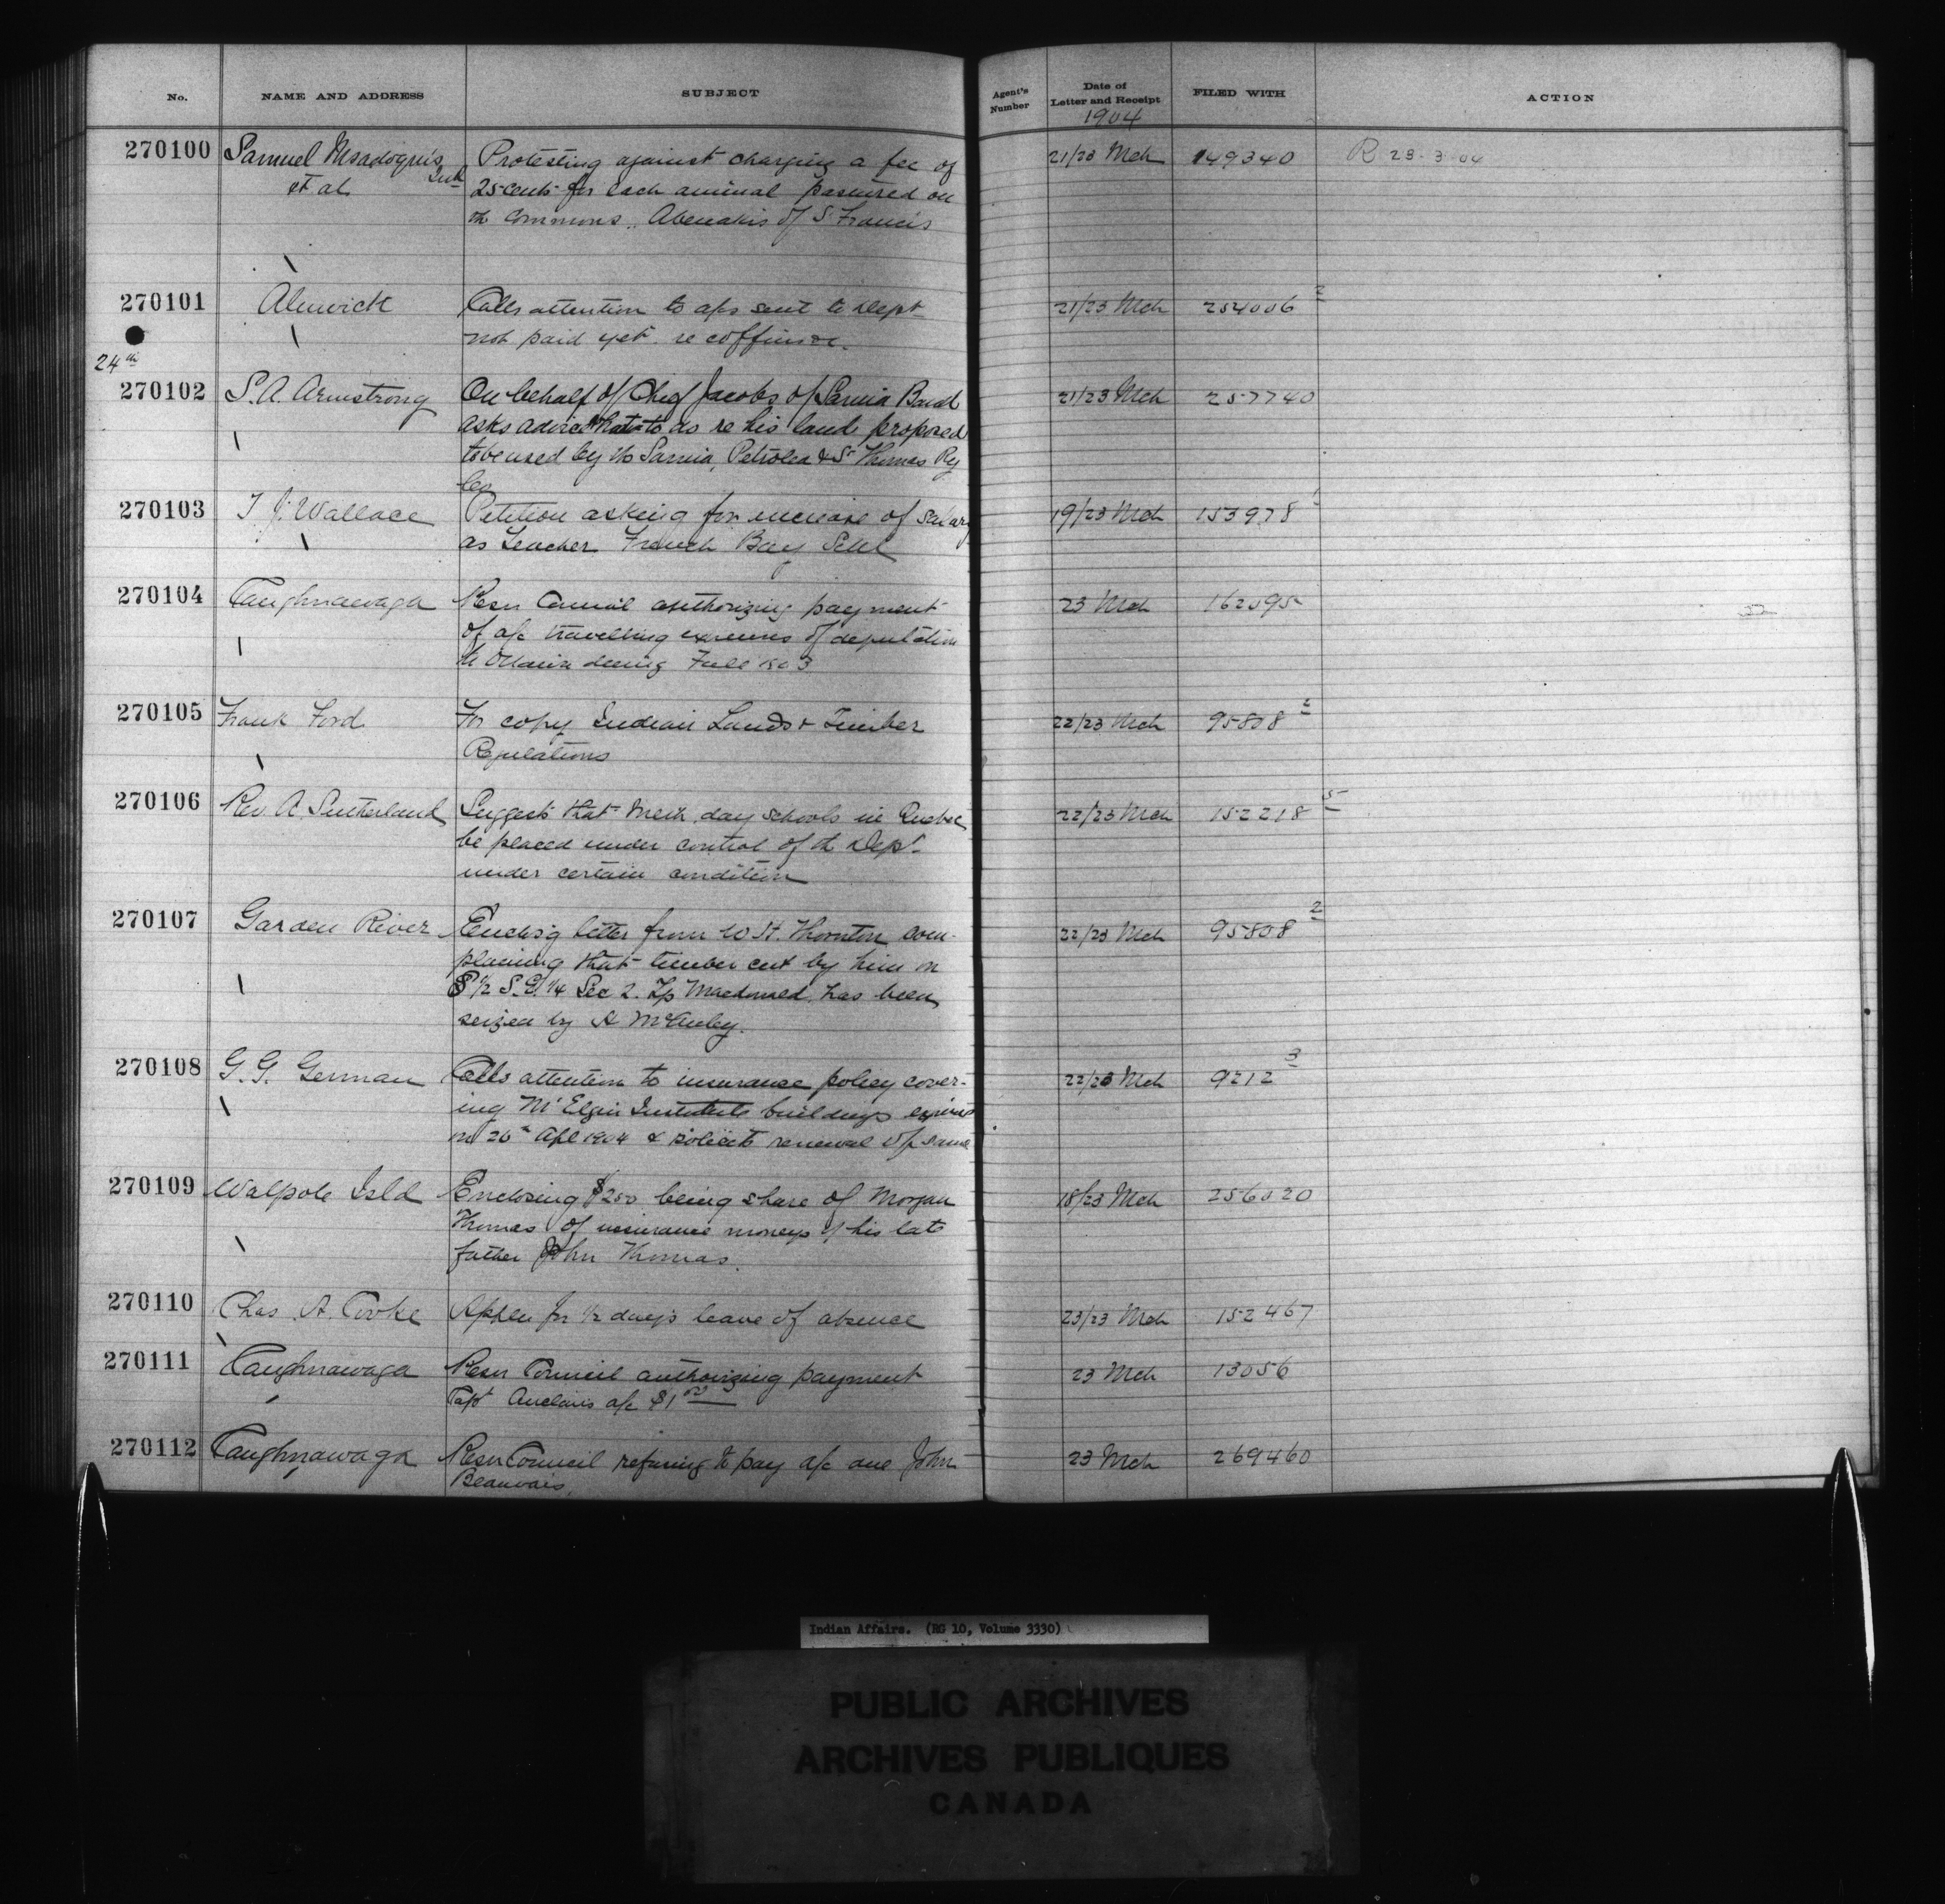 No. NAME AND ADDRESS SUBJECT Agent's Number Date of Letter and Receipt FILED WITH ACTION
1904
270100 Samuel Msadoquis Protesting against charging a fee of 21/23 Mch 149340 R 29-3-04
et al 25 cents for each animal pastured on
the commons, Abenakis of St Francis
270101 Alnwick Calls attention to a/cs sent to Dept 21/23 Mch 254006 2
not paid yet re coffins &c.
24th
270102 S. A. Armstrong On behalf of Chief Jacobs of Sarnia Band 21/23 Mch 257740
asks advice what to do re his land proposed
to be used by the Sarnia, Petrolea & St Thomas Ry
Co
270103 T J. Wallace Petition asking for increase of salary 19/23 Mch 153978 1
as teacher French Bay Schl
270104 Caughnawaga Resn Council authorizing payment 23 Mch 162595
of a/c travelling expenses of deputation
to Ottawa during Fall 1903
270105 Frank Ford For copy Indian Lands & Timber 22/23 Mch 95808 2
Regulations
270106 Rev A. Sutherland Suggests that Meth. day schools in Quebec 22/23 Mch 152218 5
be placed under control of the Dept.
under certain condition
270107 Garden River Enclos'g letter from W H. Thornton com- 22/23 Mch 95808 2
plaining that timber cut by him on
S 1/2 S.E. 1/4 Sec 2. Tp Macdonald has been
seized by A McAuley.
270108 G. G. German Calls attention to insurance policy cover- 22/23 Mch 9212 3
ing Mt Elgin Institute buildings expires
on 26th Apl 1904 & solicits renewal of same
270109 Walpole Isld Enclosing $200 being share of Morgan 18/23 Mch 256020
Thomas of insurance moneys of his late
father John Thomas.
270110 Chas. A. Cooke Appln for 1/2 day's leave of absence 23/23 Mch 152467
270111 Caughnawaga Resn Council authorizing payment 23 Mch 13056
Capt a/c $1 00
270112 Caughnawaga Resn Council refusing to pay a/c one John 23 Mch 269460
Beauvais.
Indian Affairs. (RG 10, Volume 3330)
PUBLIC ARCHIVES
ARCHIVES PUBLIQUES
CANADA